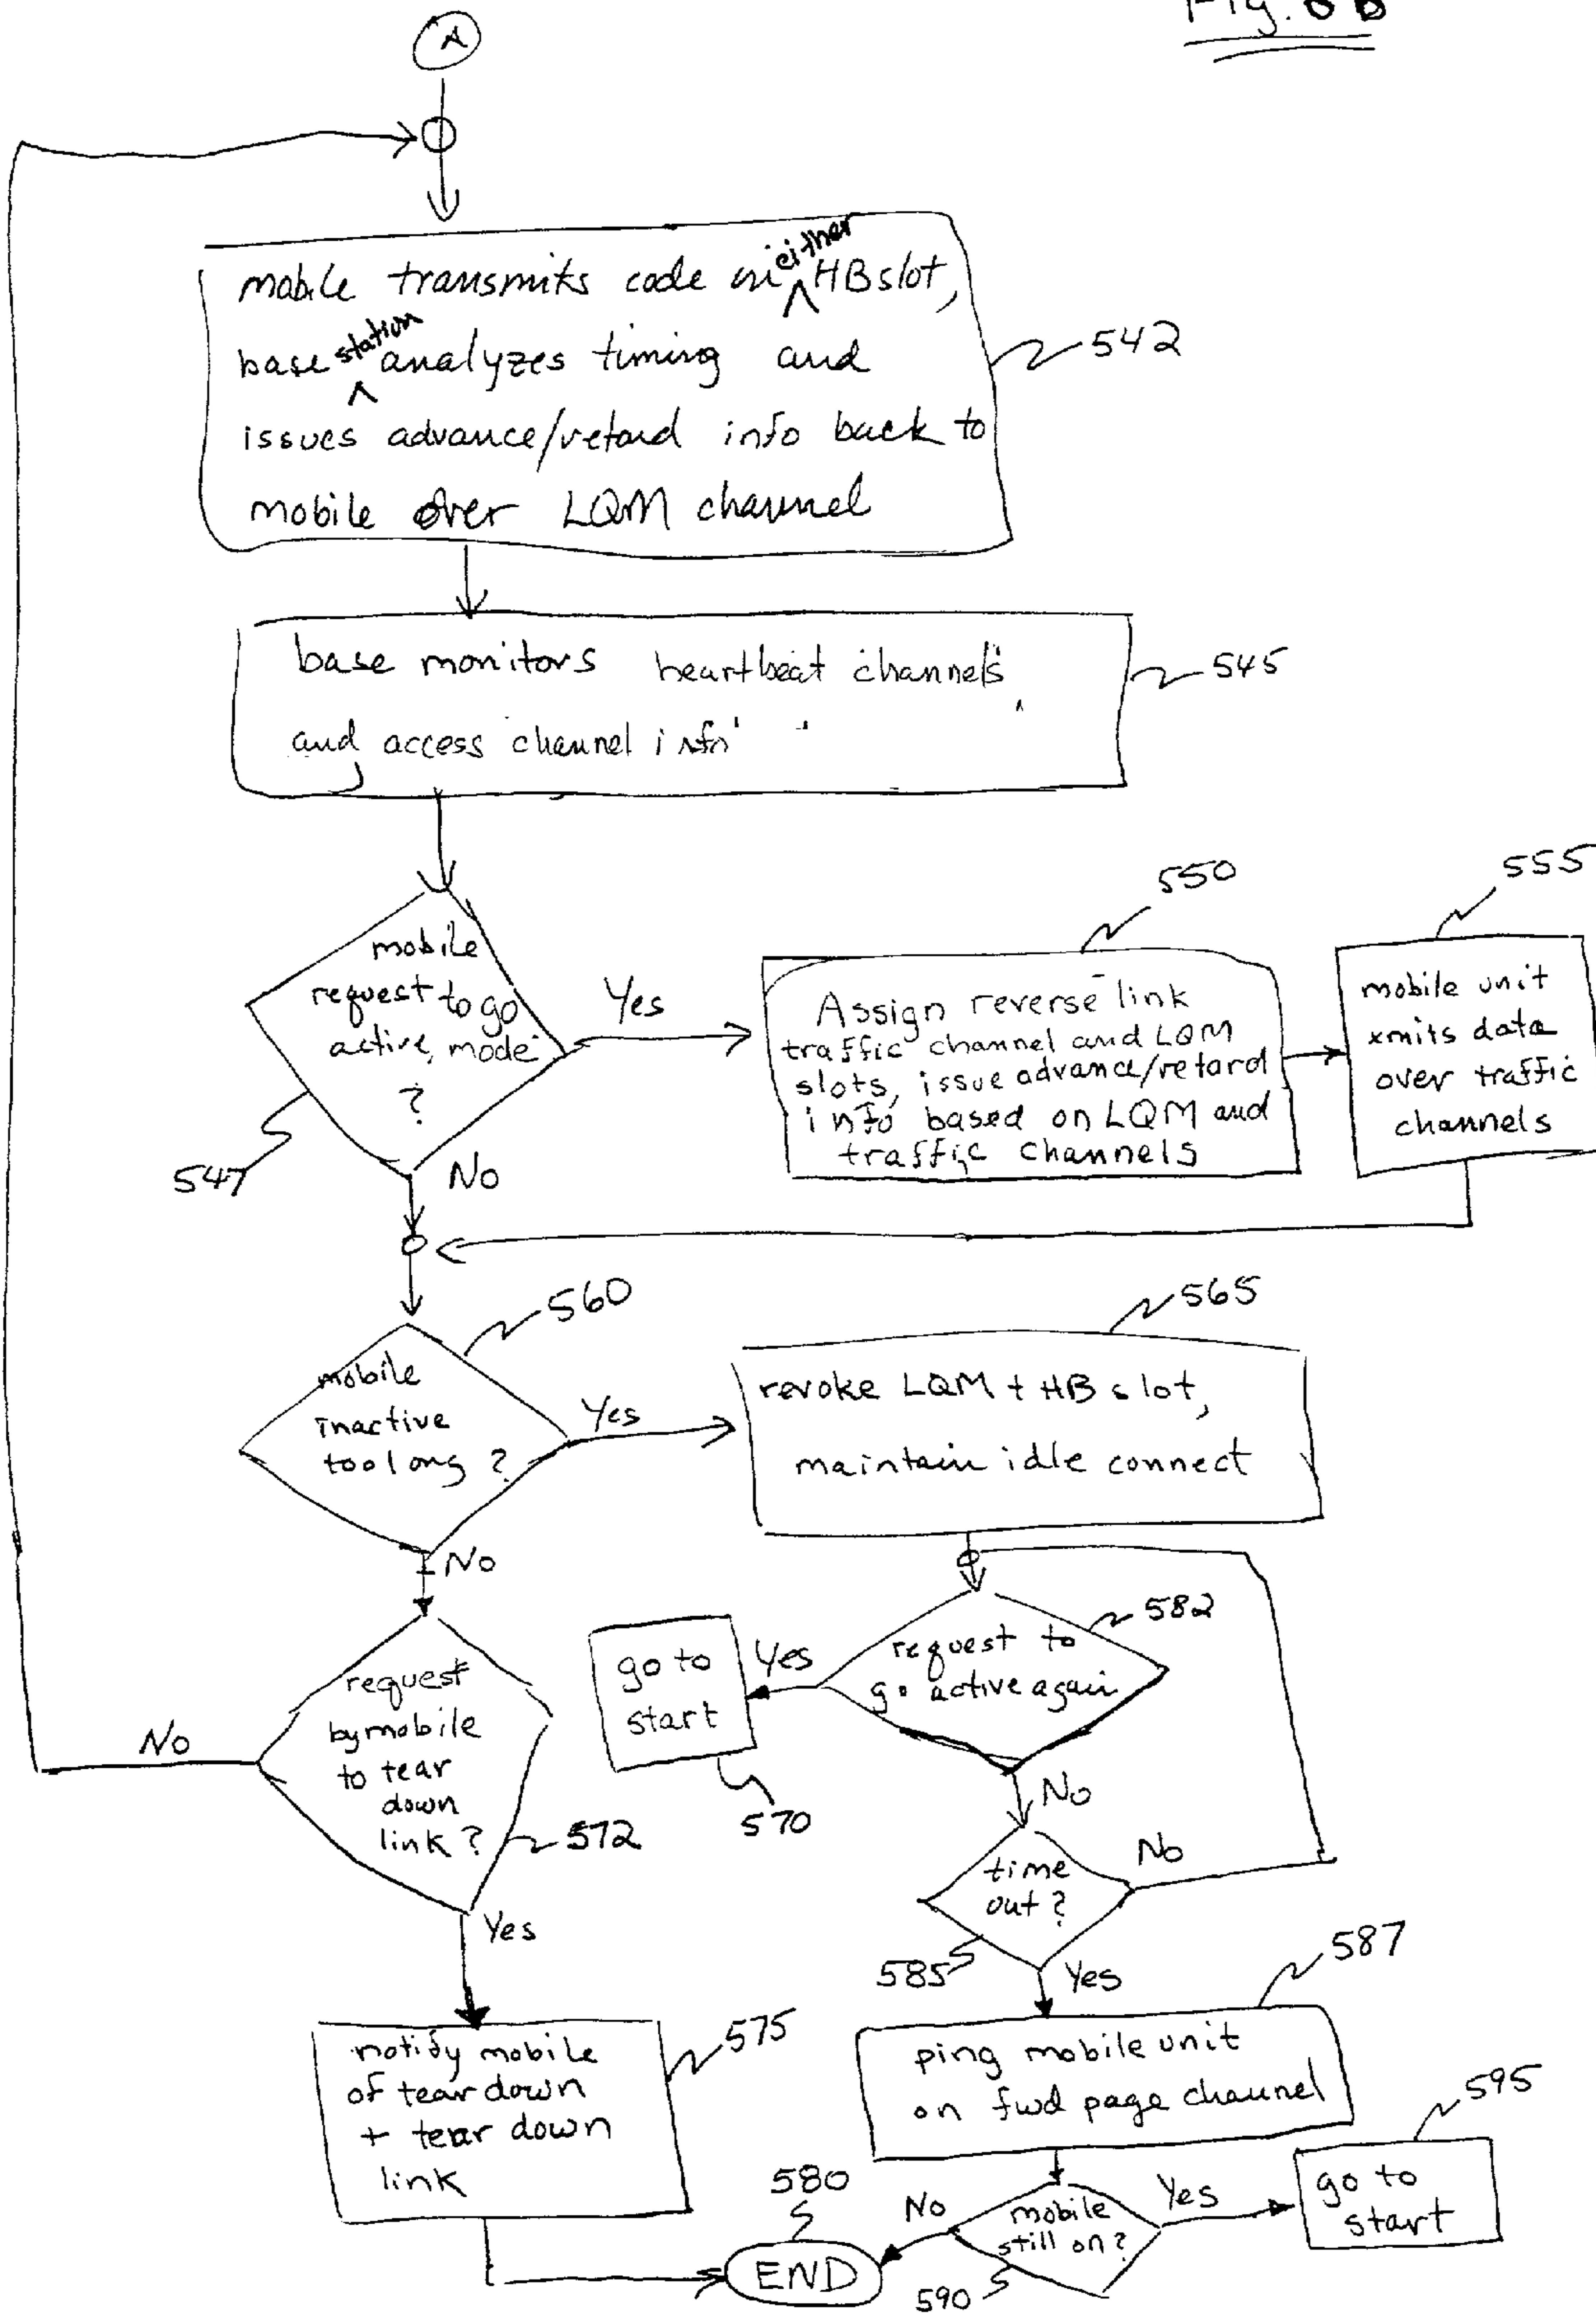 Fig. 8B
A
mobile transmits code on either HB slot,
base station analyzes timing and
issues advance/retard info back to
mobile over LQM channel
542
base monitors heartbeat channels
and access channel info
545
mobile
request to go
active mode
?
547
Yes
No
550
Assign reverse link
traffic channel and LQM
slots, issue advance/retard
info based on LQM and
traffic channels
555
mobile unit
xmits data
over traffic
channels
560
mobile
inactive
too long ?
Yes
No
565
revoke LQM + HB slot,
maintain idle connect
582
request to
go active again
Yes
No
go to
start
570
request
by mobile
to tear
down
link ?
572
No
Yes
time
out ?
585
No
Yes
587
ping mobile unit
on fwd page channel
575
notify mobile
of tear down
+ tear down
link
580
END
mobile
still on ?
590
No
Yes
595
go to
start